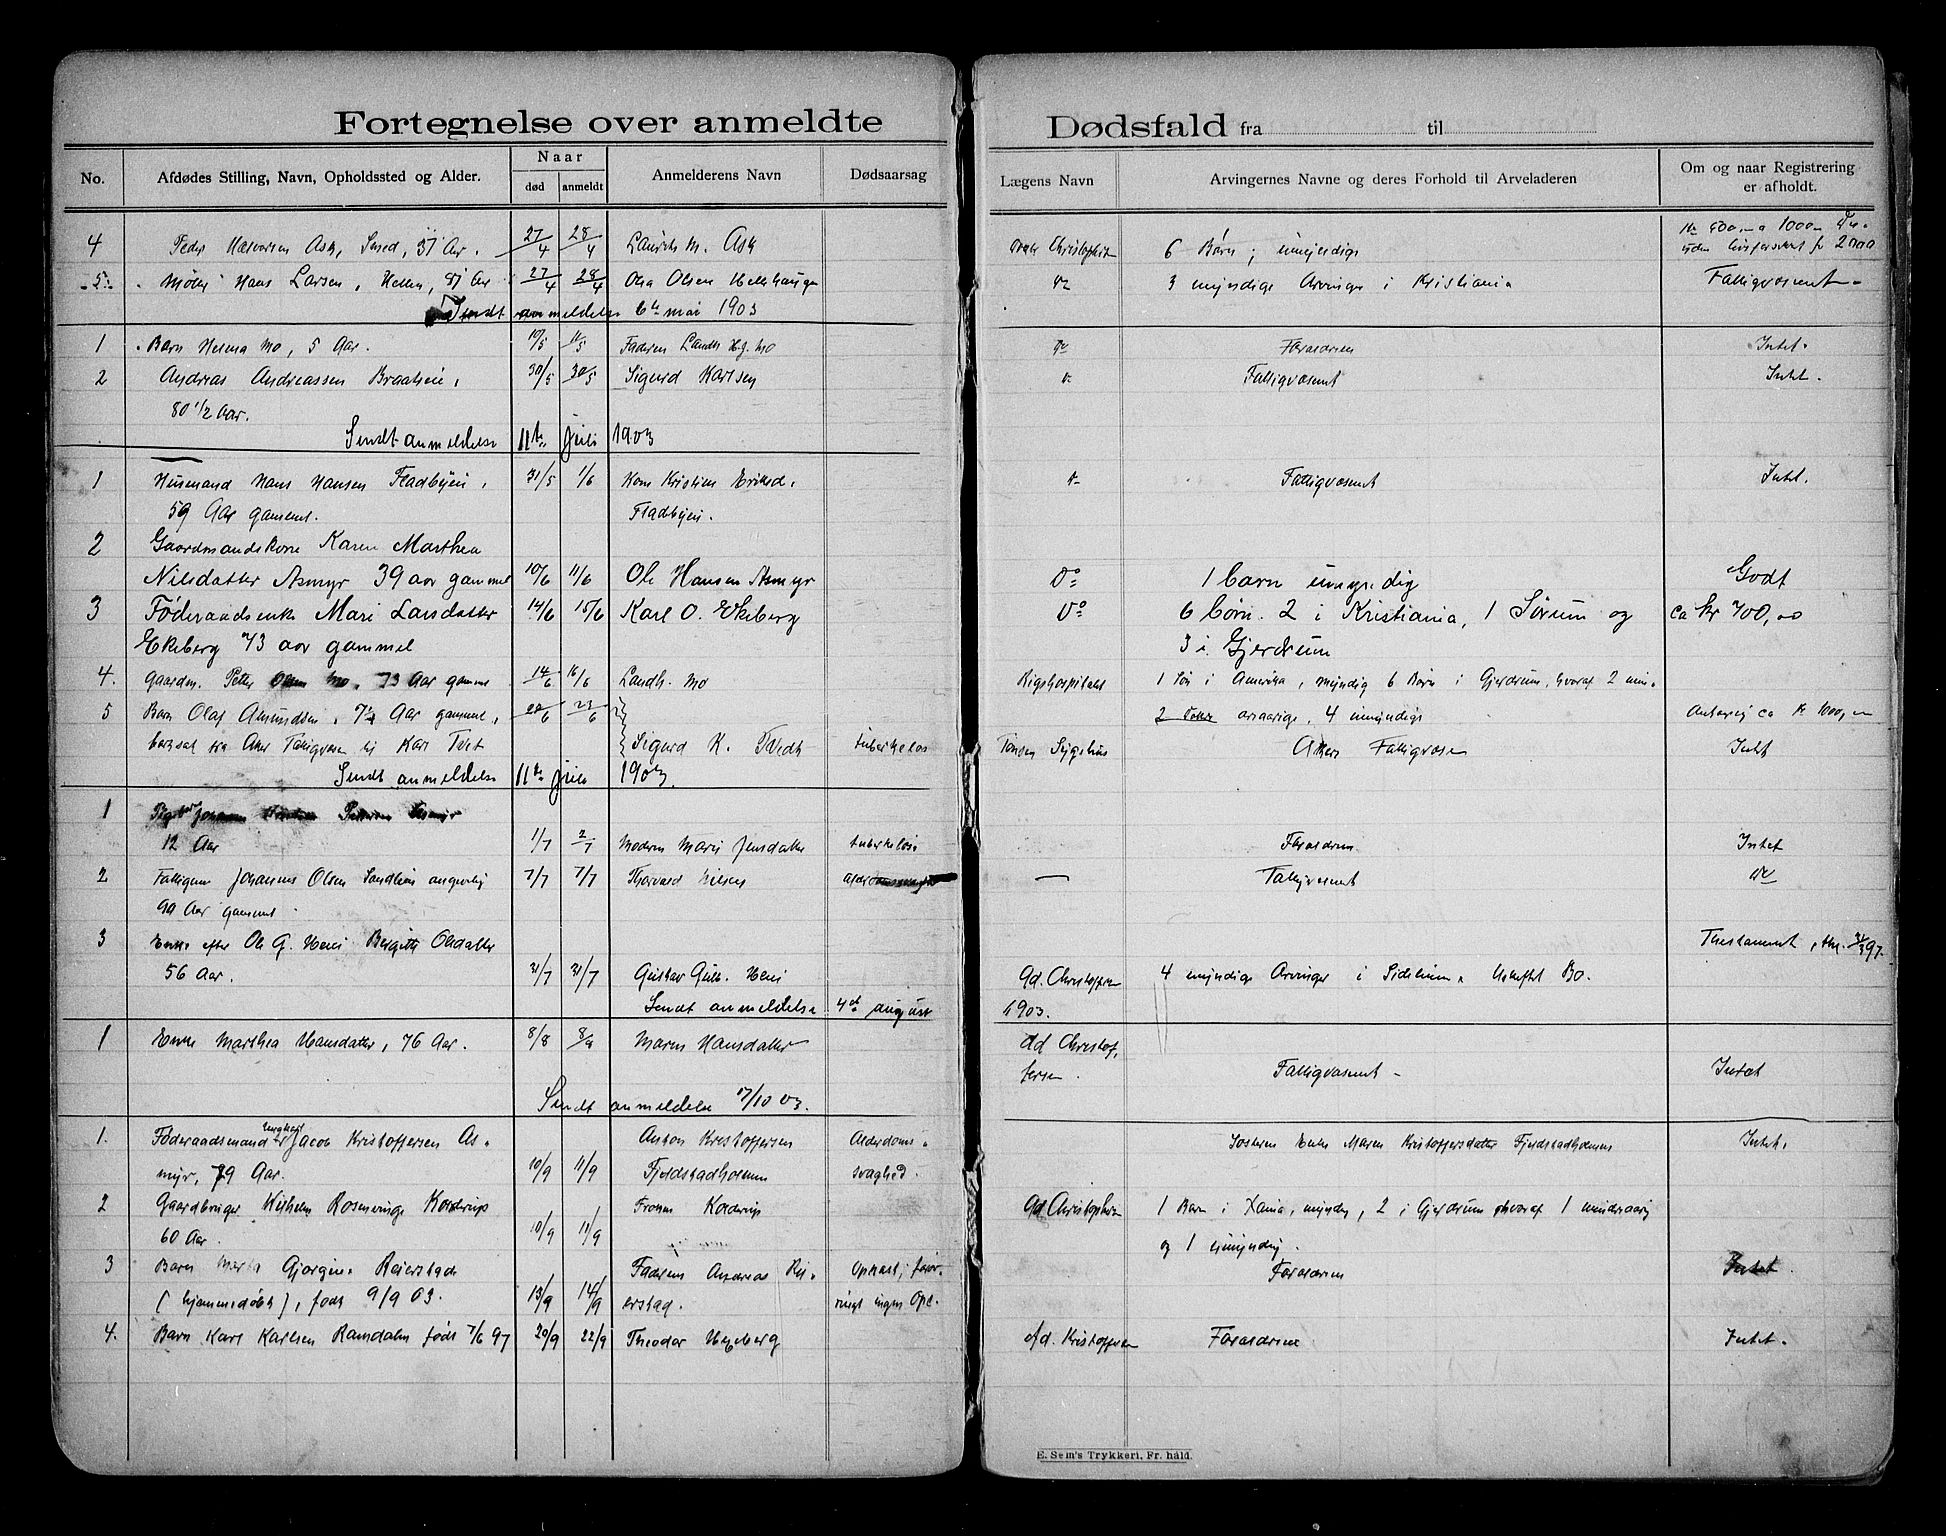 Fortegnelse over anmeldte Dødsfald fra til
No. Afdødes Stilling, Navn, Opholdssted og Alder. Naar død anmeldt Anmelderens Navn Dødsaarsag Lægens Navn Arvingernes Navne og deres Forhold til Arveladeren Om og naar Registrering er afholdt.
4 Peder Halvorsen Ask, Smed, 37 Aar. 27/4 28/4 M. Ask Christophersen 6 Børn; umyndige 1000
5 Hans Larsen, Hellen, 81 Aar 27/4 28/4 Ola Olsen Hellehaugen Do 3 myndige Arvinger i Kristiania Fattigvæsenet
Sendt anmeldelse 6te mai 1903
1 Barn Helma Mo, 5 Aar. 10/5 11/5 Faderen Landh. H. J. Mo Do Forældrene Intet.
2 Andreas Andreassen Braateeie, 30/5 30/5 Sigurd Karlsen Fattigvæsenet Intet.
80 1/2 Aar.
Sendt anmeldelse 11te juli 1903
1 Husmand Hans Hansen Fladbyeie, 31/5 1/6 Kone Kristine Eriksd. Fattigvæsenet Intet.
59 Aar gammel. Fladbyeie.
2 Gaardmandskone Karen Marthea
Nilsdatter Asmyr 39 aar gammel 10/6 11/6 Ole Hansen Asmyr Do 1 barn umyndig Godt
3 Føderaadsenke Mari Larsdatter 14/6 15/6 Karl O. Ekeberg Do 6 børn. 2 i Kristiania, 1 Sørum og ca Kr 700,00
Ekeberg 73 aar gammel 3 i Gjerdrum
4. Gaardm. Petter Olsen Mo, 73 Aar gammel 14/6 16/6 Landh. Mo Rigshospitalet 1 Søn i Amerika, myndig 6 Børn i Gjerdrum, hvoraf 2 min-
5 Barn Olaf Amundsen, 7 1/2 Aar gammel, 20/6 23/6 2 aarige, 4 umyndige Antagelig ca Kr 1000,
bortsat fra Aker Fattigvæsen til Karl Tvet Sigurd K. Tvedt tuberkeløs Tonsen Sygehus Akers Fattigvæsen Intet
Sendt anmeldelse 11te juli 1903.
1 Johannes
12 Aar 1/7 2/7 Moderen Maris Jensdatter tuberkeløse Forældrene Intet
2 Fattiglem Johannes Olsen Sandlieie angivelig 7/7 7/7 Thorvald Nilsen Fattigvæsenet Do
90 Aar gammel
3 Enke efter Ole G. Heni Bergitte Olsdatter Thestament,
56 Aar. 31/7 31/7 Gustav Gulb. Heni Ad. Christoffersen 4 myndige Arvinger i Uskiftet Bo.
Sendt anmeldelse 4de august 1903.
1 Enke Marthea Hansdatter, 76 Aar. 8/8 8/8 Maren Hansdatter Ad Christof-
fersen Fattigvæsenet Intet
Sendt anmeldelse 17/10 03.
1. Føderaadsmand Ungkarl Jacob Kristoffersen As- Anton Kristoffersen Alderdoms- Søsteren Enke Maren Kristoffersdatter Fjeldstadholmens Intet.
myr, 79 Aar. 10/9 11/9 Fjeldstadholmen svaghed.
2 Gaardbruger Wilhelm Rosenvinge Kolderup Frøken Kolderup Ad Christophersen 1 Barn i Xania, myndig, 2 i Gjerdrum hvoraf 1 mindreaarig
60 Aar. 10/9 11/9 og 1 umyndig.
3 Barn Marta Gjørgine Reierstad Faderen Andreas Rei- Opkast; Forældrene Intet.
(hjemmedøbt), født 9/9 03. 13/9 14/9 erstad.
4. Barn Karl Karlsen Ramdalen født 7/6 97 20/9 22/9 Theodor Hexeberg Ad. Kristoffersen Forældrene Intet.
E. Sem's Trykkeri, Fr. hald.